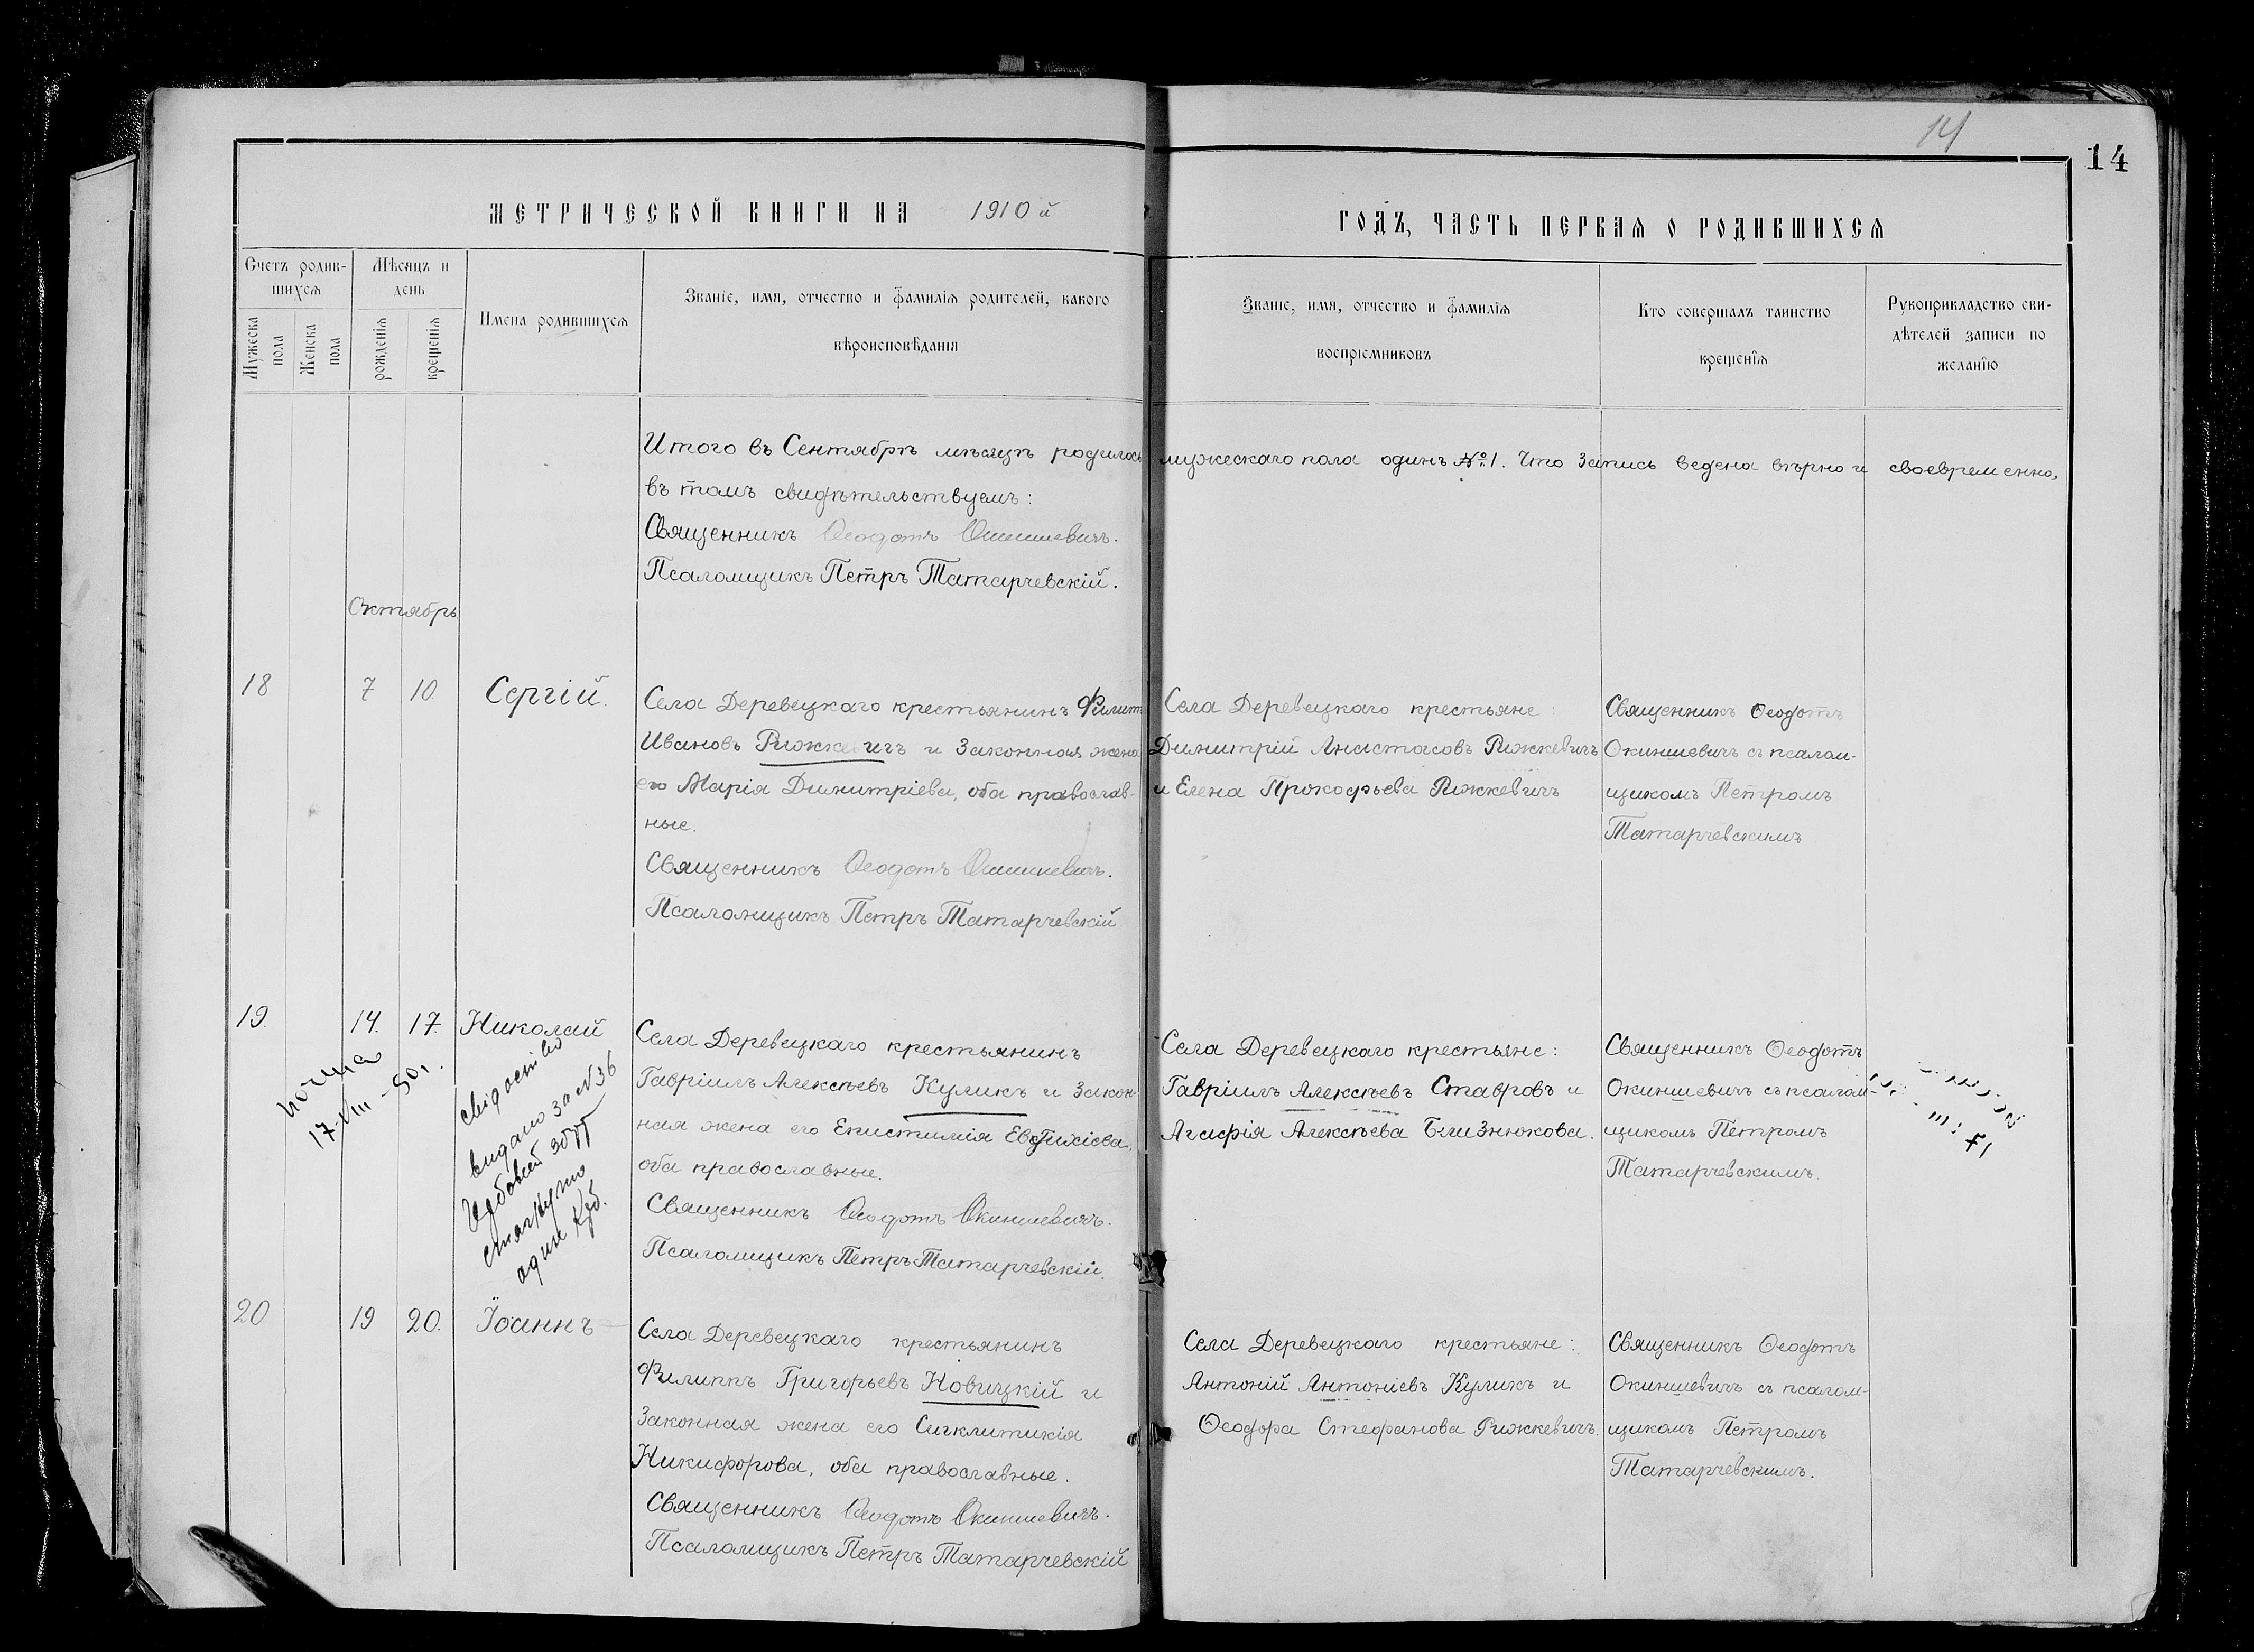 14
14
МЕТРИЧЕСКОЙ КНИГИ НА 1910й ГОДЪ, ЧАСТЬ ПЕРВАЯ О РОДИВШИХСЯ
Счетъ родив-
шихся
Мужеска пола
Женска пола
Мѣсяцъ и
день
рожденія
крещенія
Имена родившихся
Званіе, имя, отчество и фамилія родителей, какого
вѣроисповѣданія
Званіе, имя, отчество и фамилія
воспріемниковъ
Кто совершалъ таинство
крещенія
Рукоприкладство сви-
дѣтелей записи по
желанію
Итого въ Сентябрѣ мѣсяцѣ родилось мужескаго пола одинъ №1. Что запись ведена вѣрно и своевременно,
въ томъ свидѣтельствуемъ:
Священникъ Ѳеодотъ Окиншевичъ.
Псаломщикъ Петръ Татарчевскій.
Октябрь
18
7
10
Сергій.
Села Деревецкаго крестьянинъ Филипп
Ивановъ Рижкевичъ и законная жена
его Марія Димитріева, оба православ-
ные.
Священникъ Ѳеодотъ Окиншевичъ.
Псаломщикъ Петръ Татарчевскій
Села Деревецкаго крестьяне:
Димитрій Анастасовъ Рижкевичъ
и Елена Прокофьева Рижкевичъ
Священникъ Ѳеодотъ
Окиншевичъ съ псалом-
щикомъ Петромъ
Татарчевскимъ
19
14.
17.
Николай
17-VIII-50г.
свідоство
видано за №36
стягнуто
один крб.
Села Деревецкаго крестьянинъ
Гавріилъ Алексѣевъ Куликъ и закон-
ная жена его Епистимія Евѳихіева,
оба православные.
Священникъ Ѳеодотъ Окиншевичъ.
Псаломщикъ Петръ Татарчевскій.
Села Деревецкаго крестьяне:
Гавріилъ Алексѣевъ Ставровъ и
Агафія Алексѣева Близнюкова.
Священникъ Ѳеодотъ
Окиншевичъ съ псалом-
щикомъ Петромъ
Татарчевскимъ.
20
19
20.
Іоаннъ
Села Деревецкаго крестьянинъ
Филиппъ Григорьевъ Новицкій и
законная жена его Сигклитикія
Никифорова, оба православные.
Священникъ Ѳеодотъ Окиншевичъ.
Псаломщикъ Петръ Татарчевскій
Села Деревецкаго крестьяне:
Антоній Антоніевъ Куликъ и
Ѳеодора Стефанова Рижкевичъ.
Священникъ Ѳеодотъ
Окиншевичъ съ псалом-
щикомъ Петромъ
Татарчевскимъ.